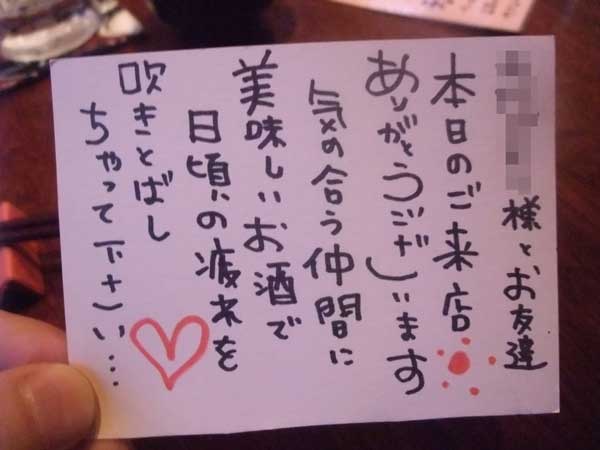 様とお友達
本日のご来店
ありがとうございます
気の合う仲間に
美味しいお酒で
日頃の疲れを
吹きとばし
ちゃって下さい…